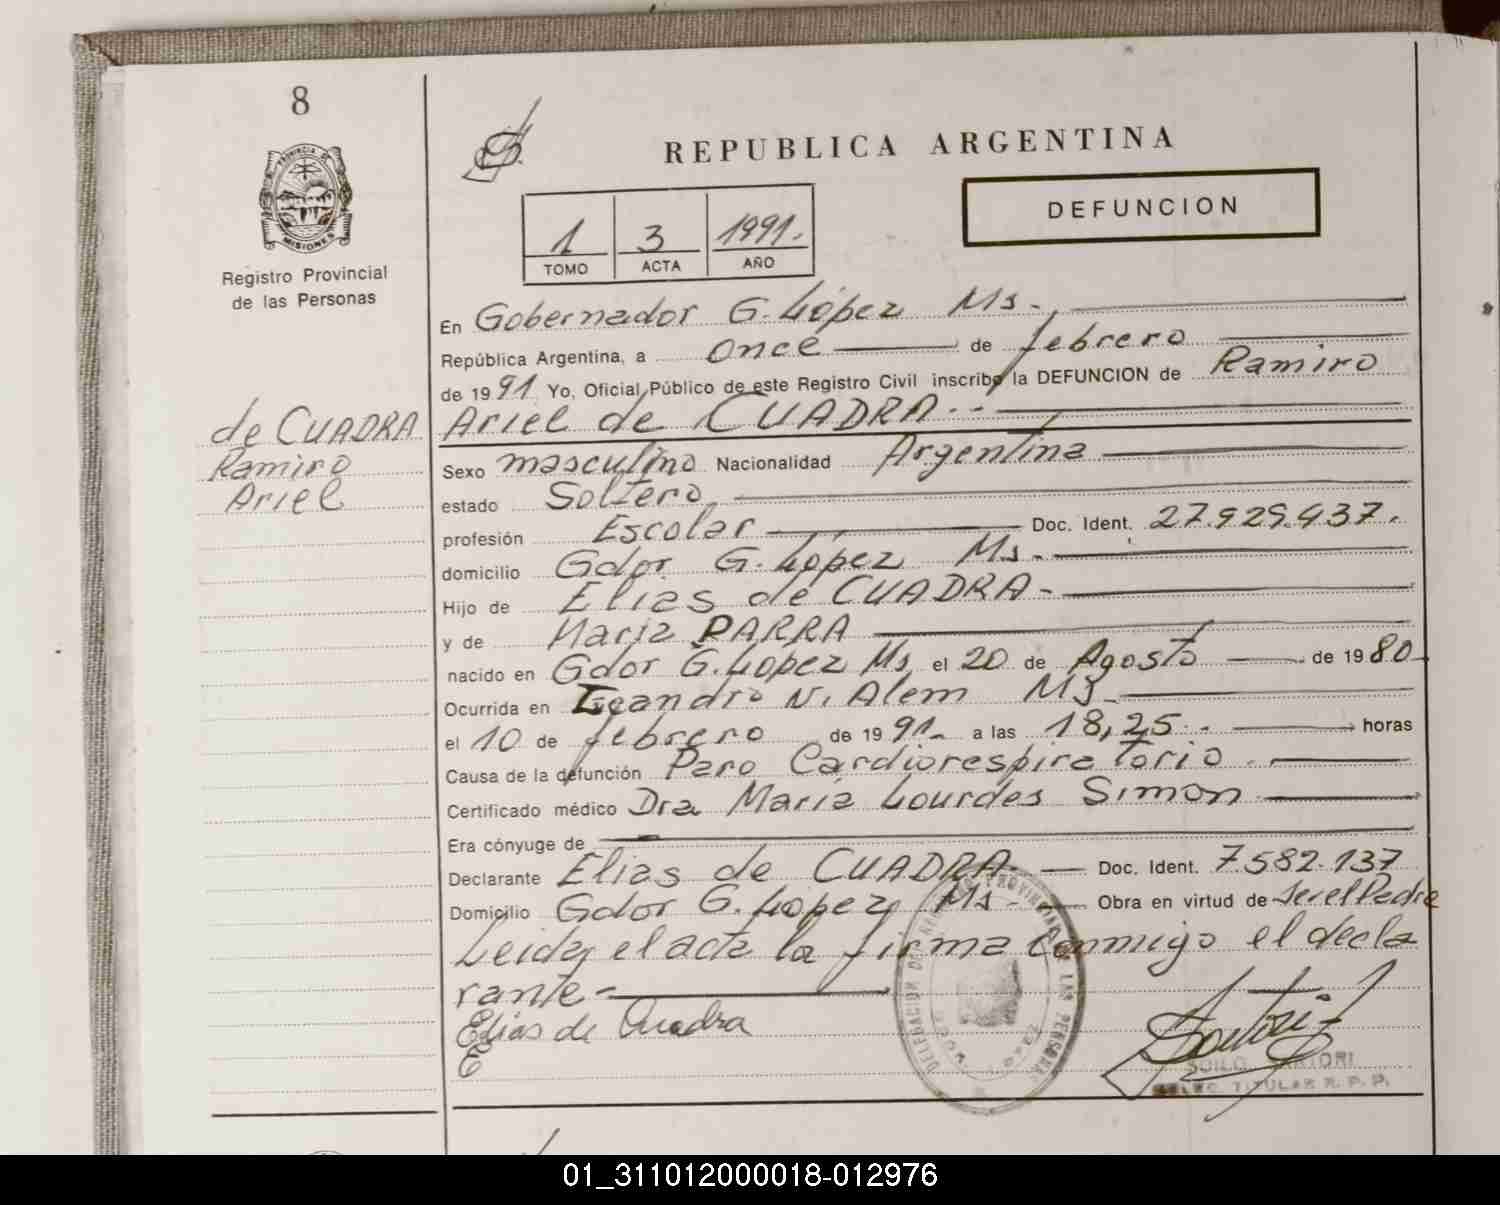 8
PROVINCIA DE
MISIONES
Registro Provincial
de las Personas
de CUADRA
Ramiro
Ariel
REPUBLICA ARGENTINA
1 3 1991.
TOMO ACTA AÑO
DEFUNCION
En Gobernador G. López Ms.
República Argentina, a once de febrero
de 1991 Yo, Oficial Público de este Registro Civil inscribo la DEFUNCION de Ramiro
Ariel de CUADRA.-
Sexo masculino Nacionalidad Argentina
estado Soltero
profesión Escolar Doc. Ident. 27.929.437.
domicilio Gdor G. López Ms.
Hijo de Elias de CUADRA-
y de Maria PARRA
nacido en Gdor G. López Ms el 20 de Agosto de 1980
Ocurrida en Leandro N. Alem Ms
el 10 de febrero de 1991. a las 18,25. horas
Causa de la defunción Paro Cardiorespiratorio.
Certificado médico Dra Maria Lourdes Simon
Era cónyuge de
Declarante Elias de CUADRA. Doc. Ident. 7.582.137
Domicilio Gdor G. López Ms- Obra en virtud de ser el Padre
Leida el acta la firma conmigo el decla
rante-
Elias de Cuadra
DELEGACION DEL REGISTRO PROVINCIAL DE LAS PERSONAS
SARTORI
TITULAR R. P. P.
01_311012000018-012976